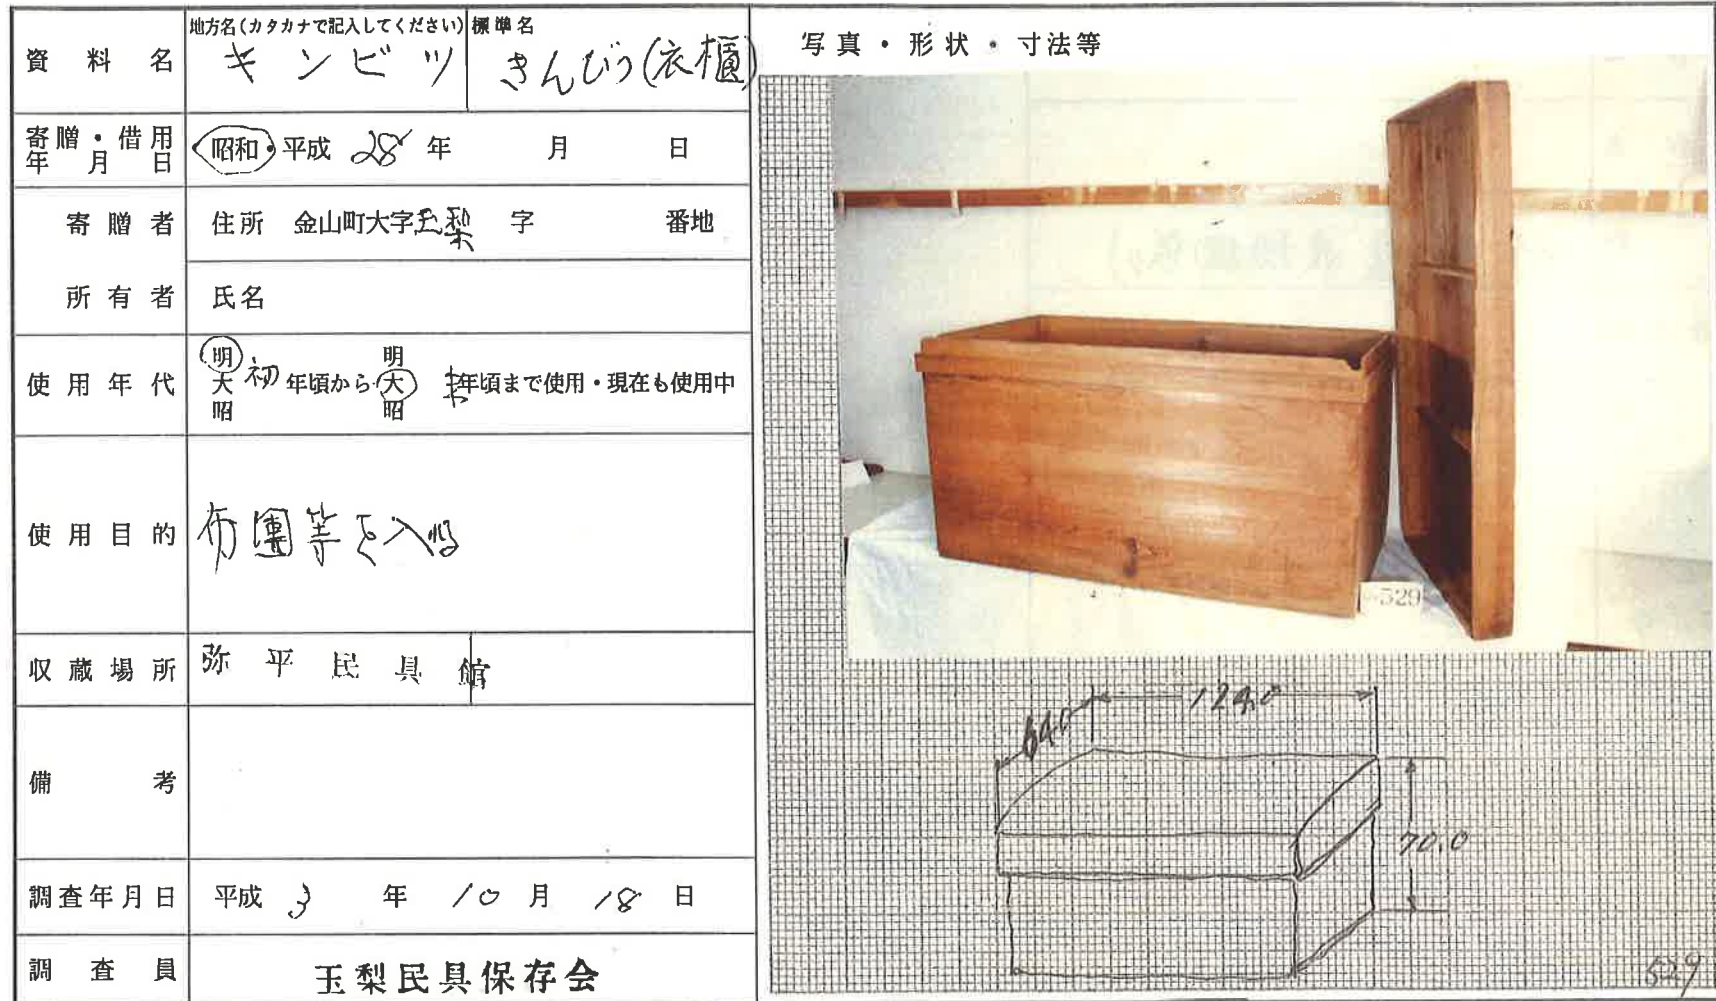 資料名 地方名(カタカナで記入してください) キンビツ 標準名 きんびつ(衣櫃)
寄贈・借用年月日 昭和・平成 28 年 月 日
寄贈者 住所 金山町大字玉梨 字 番地
所有者 氏名
使用年代 明大昭 初年頃から 明大昭 末年頃まで使用・現在も使用中
使用目的 布團等を入れる
収蔵場所 弥平民具館
備考
調査年月日 平成 3 年 10 月 18 日
調査員 玉梨民具保存会
写真・形状・寸法等
529
64.0
124.0
70.0
529